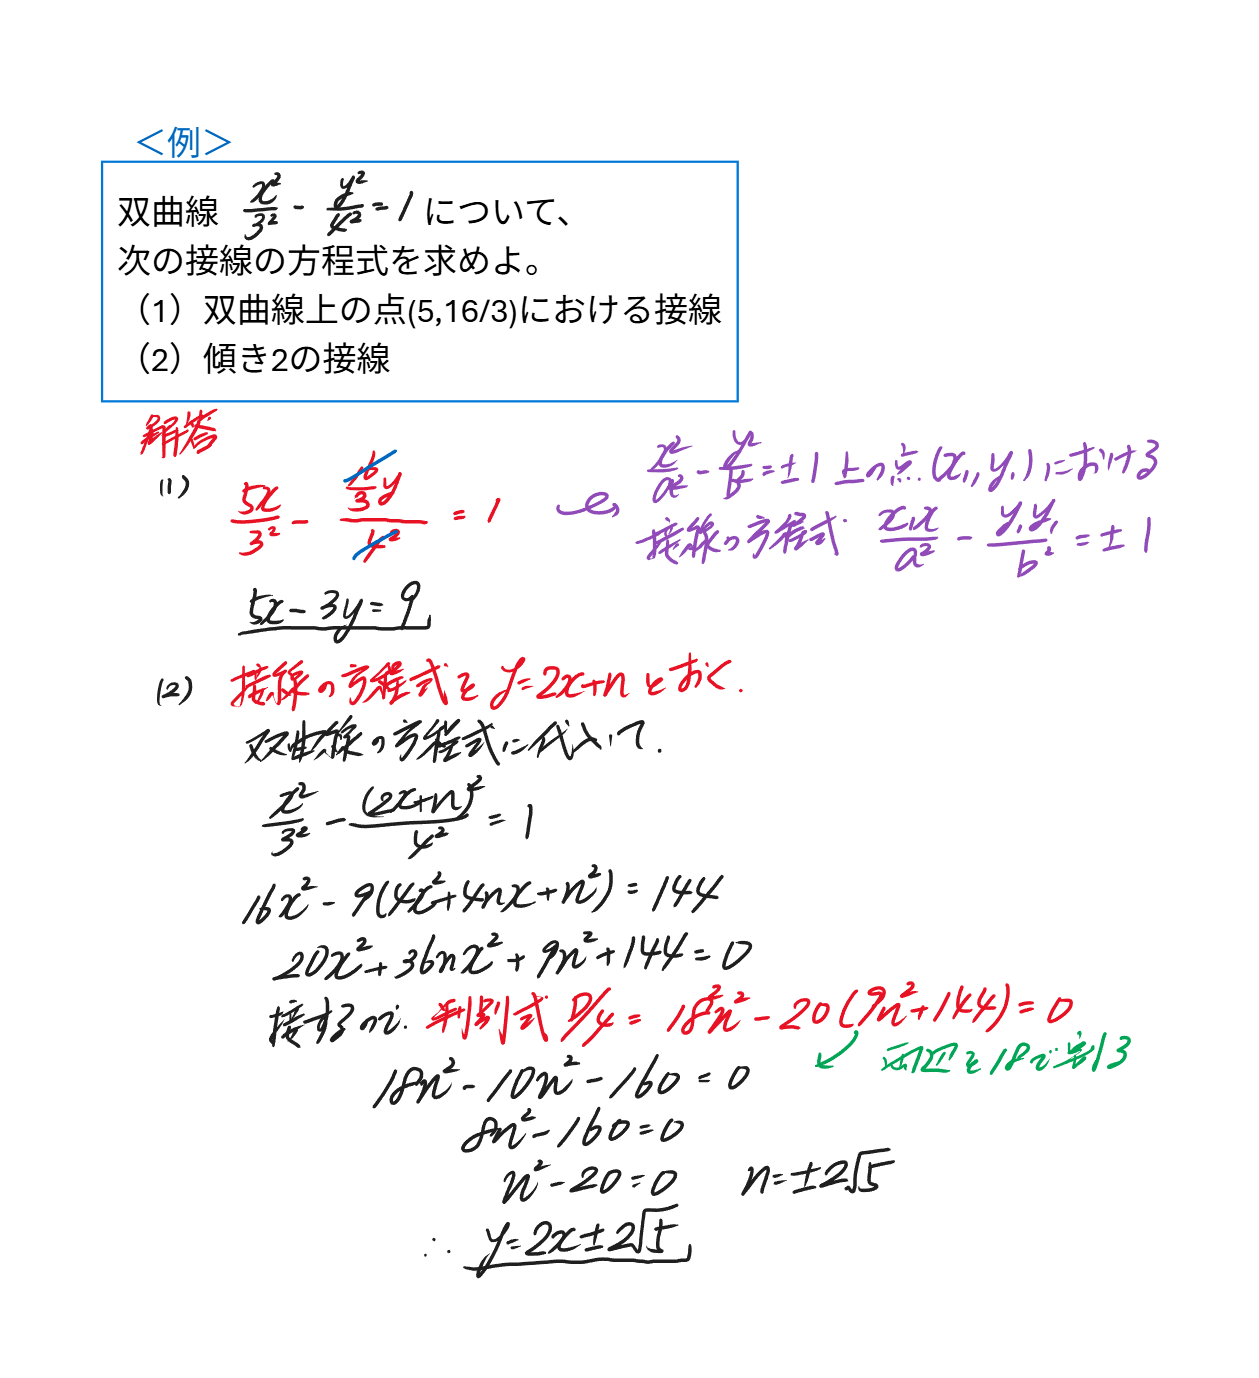 ＜例＞
双曲線 x²/3² - y²/4² = 1 について、
次の接線の方程式を求めよ。
（1）双曲線上の点(5,16/3)における接線
（2）傾き2の接線
解答
(1) 5x/3² - (16/3 y)/4² = 1
x²/a² - y²/b² = ±1 上の点 (x₁, y₁) における
接線の方程式 x₁x/a² - y₁y/b² = ±1
5x - 3y = 9
(2) 接線の方程式を y=2x+n とおく.
双曲線の方程式に代入して.
x²/3² - (2x+n)²/4² = 1
16x² - 9(4x²+4nx+n²) = 144
20x²+36nx²+9n²+144=0
接するので. 判別式 D/4 = 18²n² - 20(9n²+144) = 0
両辺を18で割る
18n² - 10n² - 160 = 0
8n² - 160 = 0
n² - 20 = 0 n = ±2√5
∴ y=2x±2√5